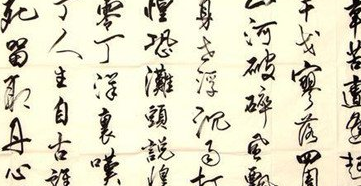 辛苦遭逢起
干戈寥落四周
山河破碎風飄
身世浮沉雨打
惶恐灘頭說惶
零丁洋裏嘆
丁人生自古誰
死留取丹心